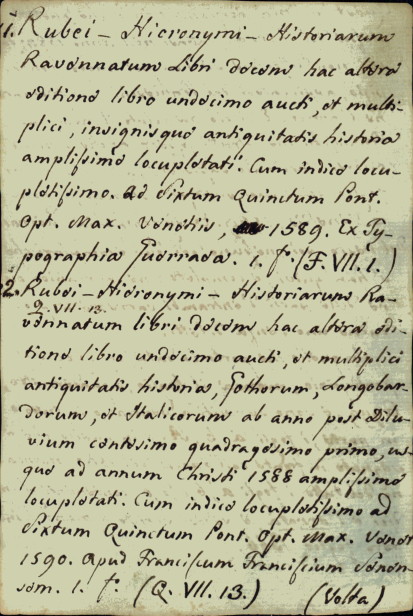 1. Rubei - Hieronymi - Historiarum
Ravennatum Libri decem hac altera
editione libro undecimo aucti, et multi-
plici, insignique antiquitatis historia
amplissime locupletati. Cum indice locu-
pletissimo. Ad Sixtum Quinctum Pont.
Opt. Max. Venetiis, 1589. Ex Ty-
pographia Guerraea. 1. f.º (F. VII. 1.)
2. Rubei - Hieronymi - Historiarum Ra-
Q. VII. 13.
vennatum libri decem hac altera edi-
tione libro undecimo aucti, et multiplici
antiquitatis historia, Gothorum, Longobar-
dorum, et Italicorum ab anno post Dilu-
vium centesimo quadragesimo primo, us-
que ad annum Christi 1588 amplissime
locupletati. Cum indice locupletissimo ad
Sixtum Quinctum Pont. Opt. Max. Venet
1590. Apud Franciscum Franciscium Senen-
sem. 1. f.º (Q. VII. 13.) (Volta)